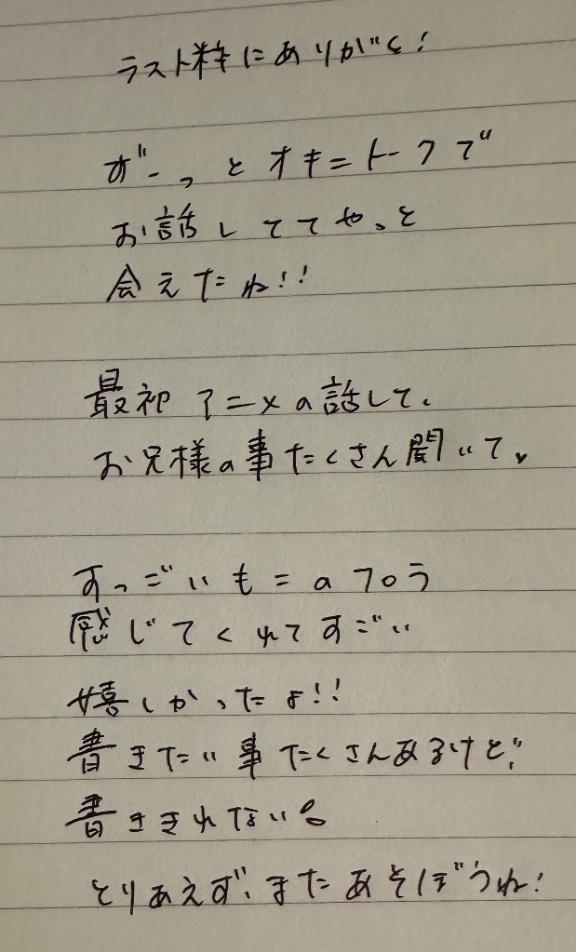 ラスト枠にありがと!
ずーっとオキニトークで
お話しててやっと
会えたね!!
最初アニメの話して、
お兄様の事たくさん聞いて、
すっごいも
感じてくれてすごい
嬉しかったよ!!
書きたい事たくさんあるけど、
書ききれない。
とりあえず、またあそぼうね!